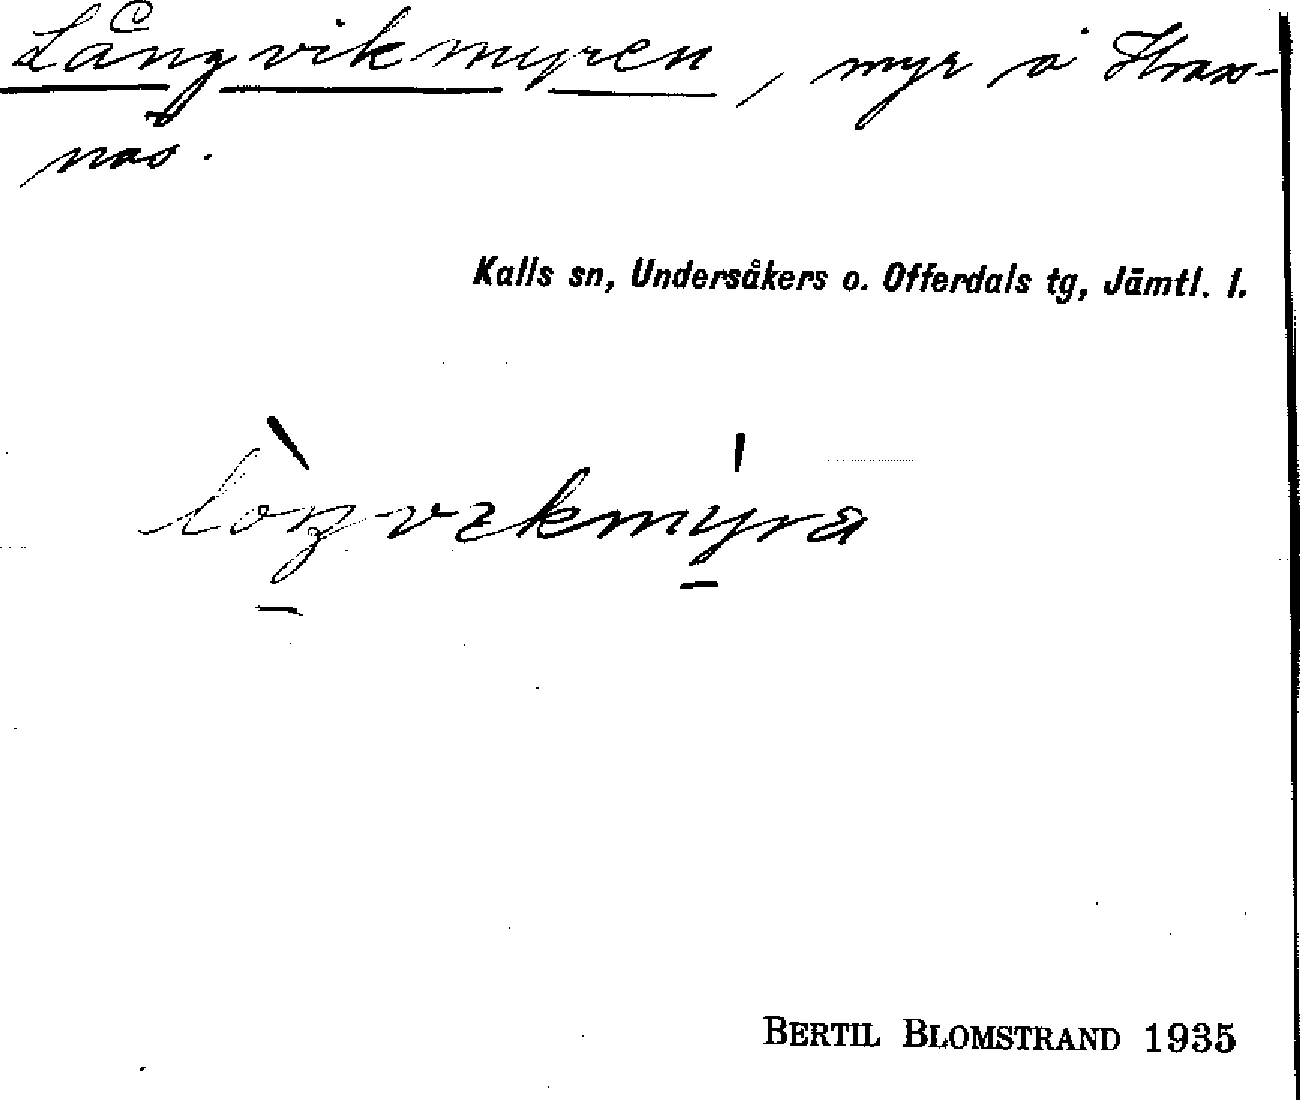 Långvikmyren, myr å Kras-
näs.
Kalls sn, Undersåkers o. Offerdals tg, Jämtl. l.
BERTIL BLOMSTRAND 1935